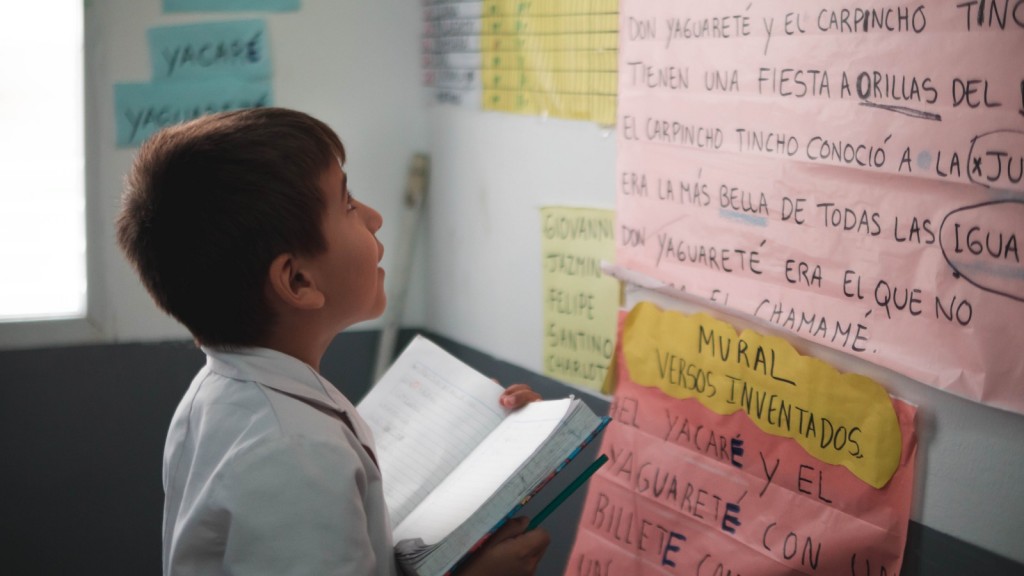 YACARÉ
YAGUARETÉ
DON YAGUARETÉ Y EL CARPINCHO TINC
TIENEN UNA FIESTA A ORILLAS DEL
EL CARPINCHO TINCHO CONOCIÓ A LA JU
ERA LA MÁS BELLA DE TODAS LAS IGUA
DON YAGUARETÉ ERA EL QUE NO
EL CHAMAMÉ.
GIOVANN
JAZMIN
FELIPE
SANTINO
CHARLOT
MURAL
VERSOS INVENTADOS.
EL YACARÉ Y EL
YAGUARETÉ CON
BILLETE